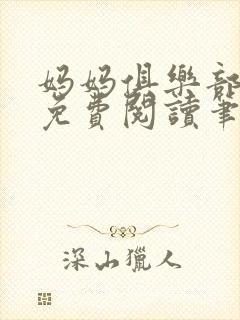 妈妈俱樂部
免費閱讀筆
深山獵人